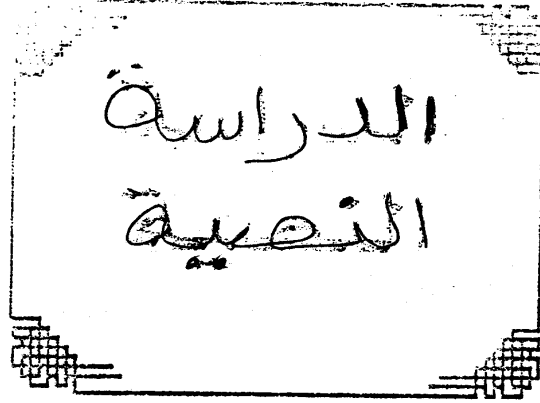 الدراسة
النصية